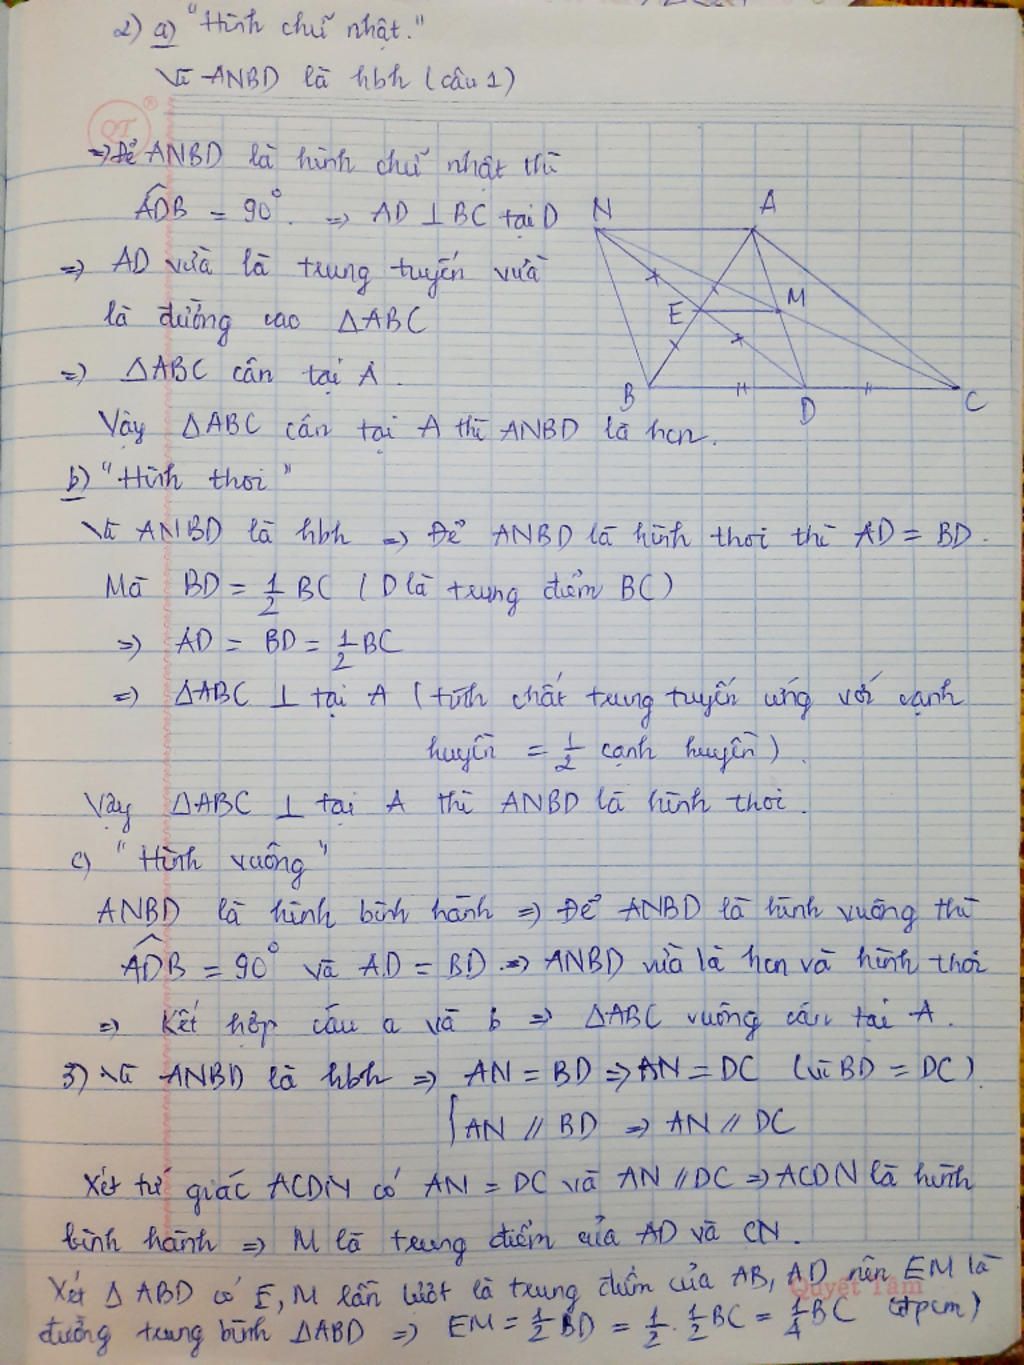 2) a) "Hình chữ nhật."
Vì ANBD là hbh (câu 1)
QT ®
=> Để ANBD là hình chữ nhật thì
ADB = 90°. => AD ⊥ BC tại D
=> AD vừa là trung tuyến vừa
là đường cao ΔABC
=> ΔABC cân tại A.
Vậy ΔABC cân tại A thì ANBD là hcn.
N A
E M
B D C
b) "Hình thoi"
Vì ANBD là hbh => Để ANBD là hình thoi thì AD = BD.
Mà BD = 1/2 BC (D là trung điểm BC)
=> AD = BD = 1/2 BC
=> ΔABC ⊥ tại A (tính chất trung tuyến ứng với cạnh
huyền = 1/2 cạnh huyền)
Vậy ΔABC ⊥ tại A thì ANBD là hình thoi.
c) "Hình vuông"
ANBD là hình bình hành => Để ANBD là hình vuông thì
ADB = 90° và AD = BD => ANBD vừa là hcn và hình thoi
=> Kết hợp câu a và b => ΔABC vuông cân tại A.
3) Vì ANBD là hbh => AN = BD => AN = DC (vì BD = DC)
{AN // BD => AN // DC
Xét tứ giác ACDN có AN = DC và AN // DC => ACDN là hình
bình hành => M là trung điểm của AD và CN.
Xét Δ ABD có E, M lần lượt là trung điểm của AB, AD nên EM là
Quyết Tâm
đường trung bình ΔABD => EM = 1/2 BD = 1/2 . 1/2 BC = 1/4 BC (đpcm)